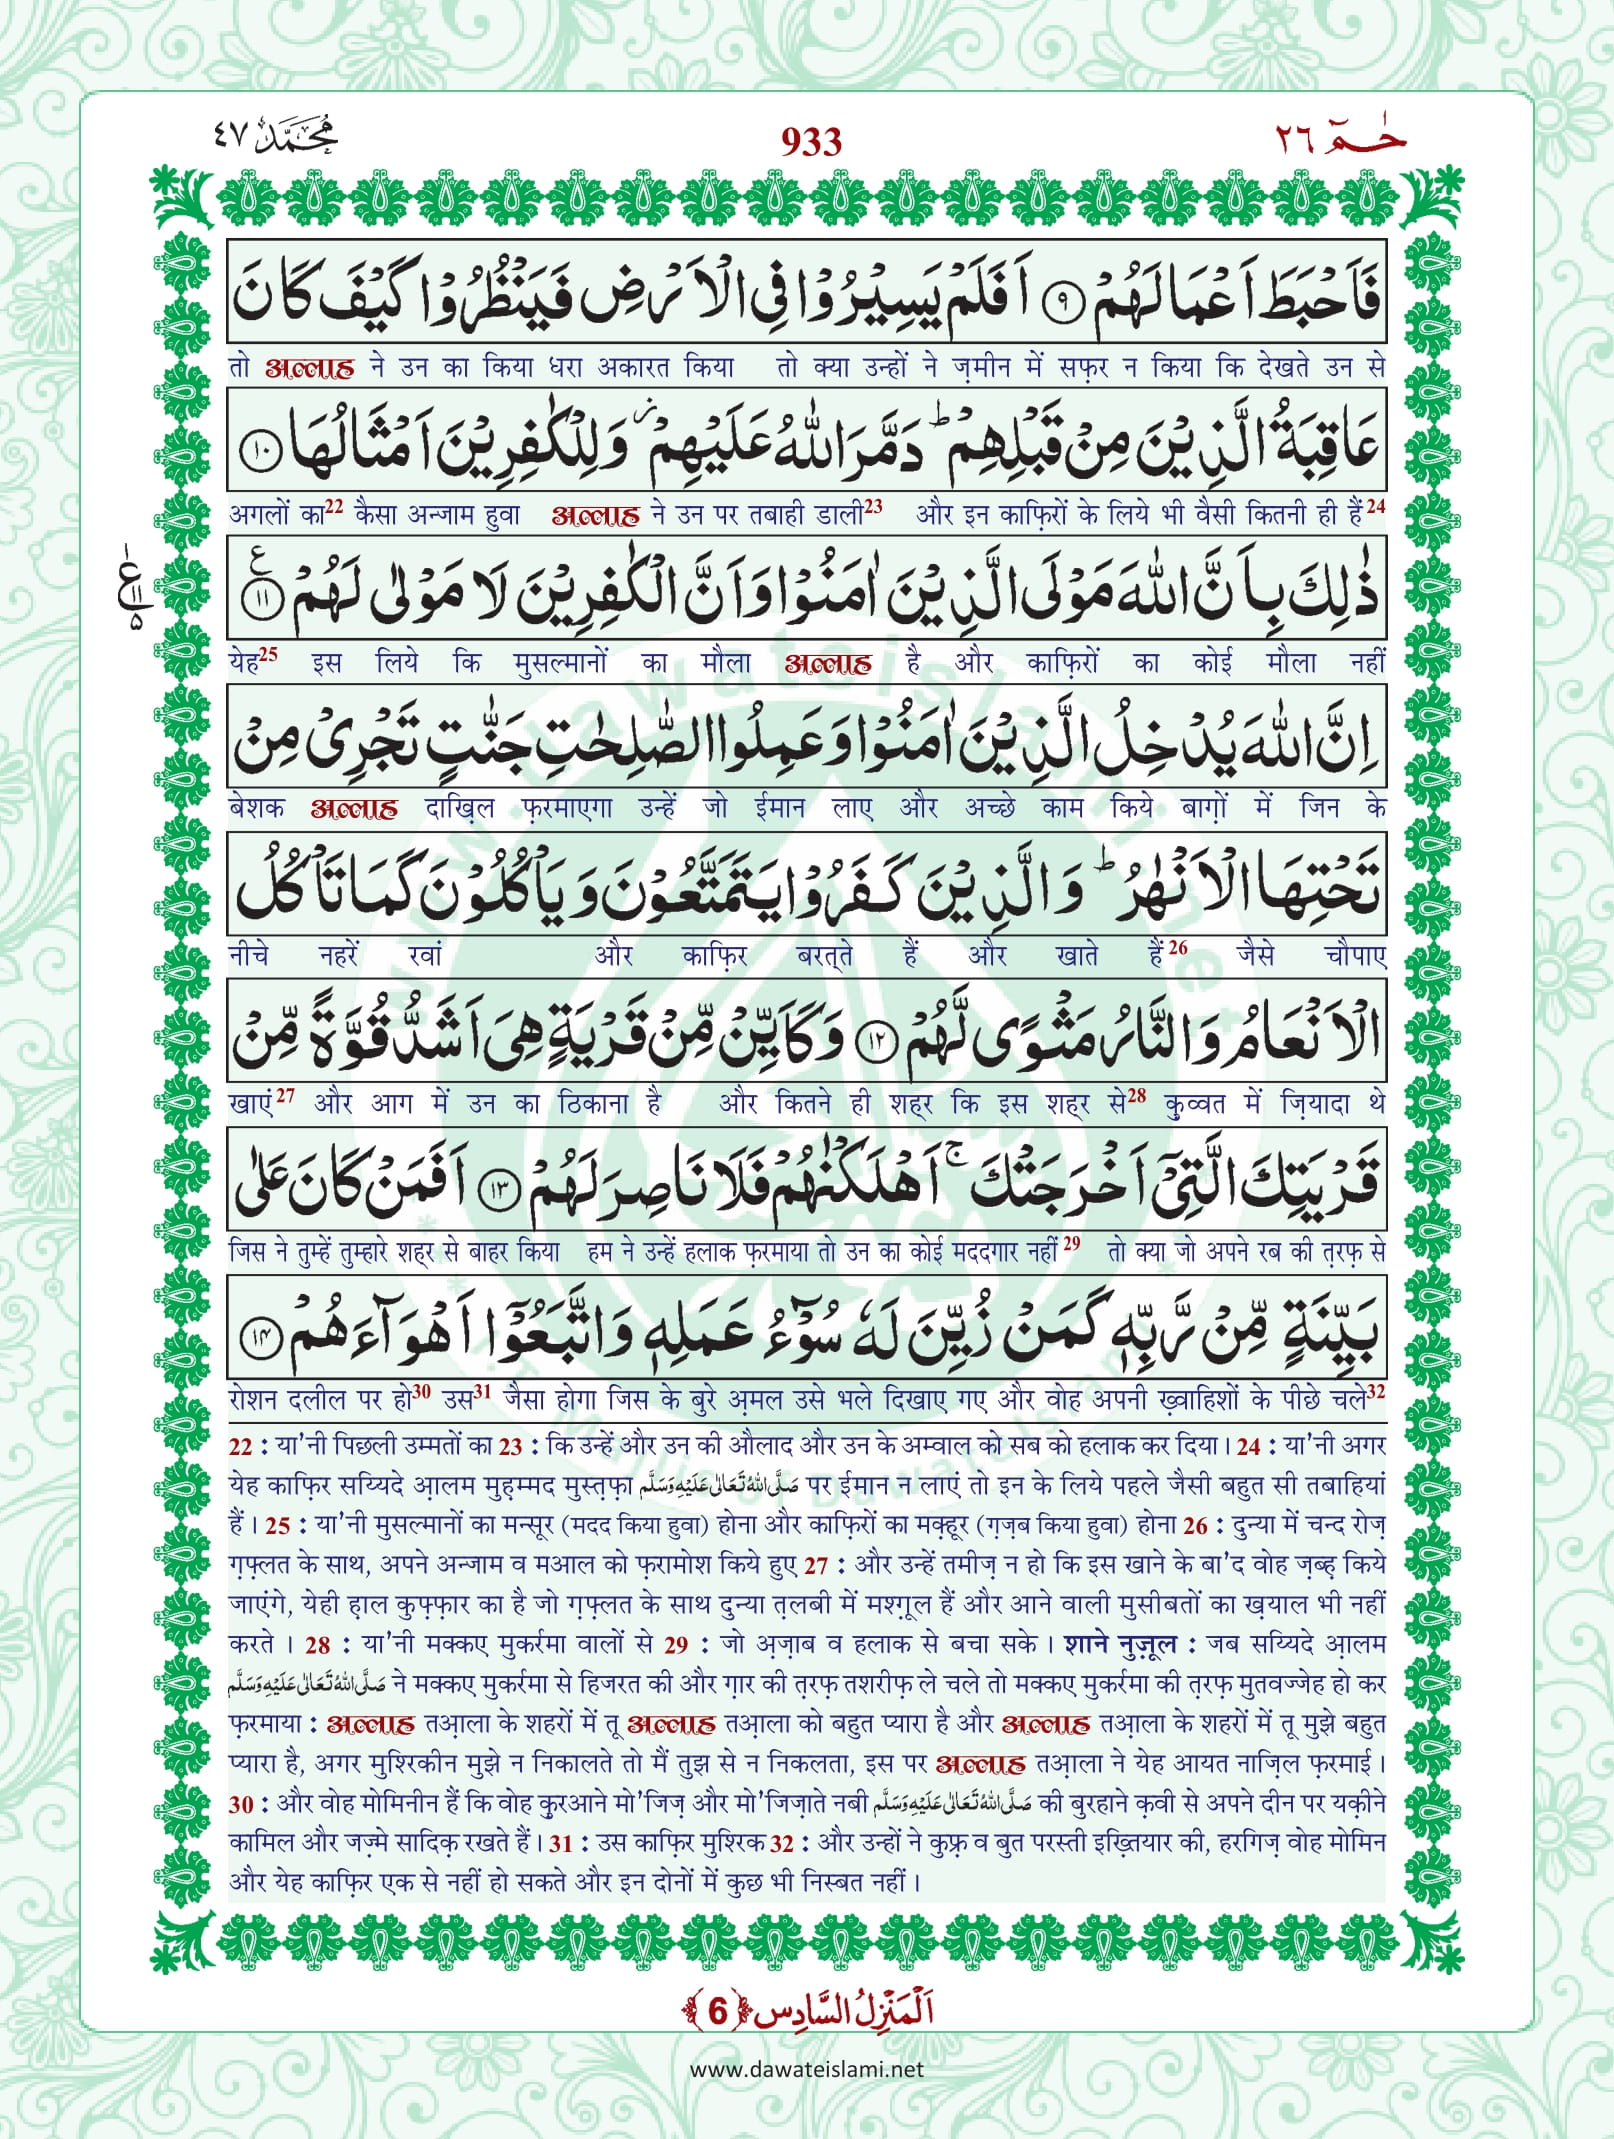 محمّد ٤٧ 933 حٰمٓ ٢٦
فَاَحْبَطَ اَعْمَالَهُمْ ﴿۹﴾ اَفَلَمْ یَسِیْرُوْا فِی الْاَرْضِ فَیَنْظُرُوْا كَیْفَ كَانَ
तो अल्लाह ने उन का किया धरा अकारत किया तो क्या उन्हों ने ज़मीन में सफ़र न किया कि देखते उन से
عَاقِبَةُ الَّذِیْنَ مِنْ قَبْلِهِمْ ؕ دَمَّرَ اللّٰهُ عَلَیْهِمْ ؗ وَ لِلْكٰفِرِیْنَ اَمْثَالُهَا ﴿۱۰﴾
अगलों का22 कैसा अन्जाम हुवा अल्लाह ने उन पर तबाही डाली23 और इन काफ़िरों के लिये भी वैसी कितनी ही हैं24
ذٰلِكَ بِاَنَّ اللّٰهَ مَوْلَی الَّذِیْنَ اٰمَنُوْا وَ اَنَّ الْكٰفِرِیْنَ لَا مَوْلٰى لَهُمْ ﴿۱۱﴾ ع
येह25 इस लिये कि मुसल्मानों का मौला अल्लाह है और काफ़िरों का कोई मौला नहीं
اِنَّ اللّٰهَ یُدْخِلُ الَّذِیْنَ اٰمَنُوْا وَ عَمِلُوا الصّٰلِحٰتِ جَنّٰتٍ تَجْرِیْ مِنْ
बेशक अल्लाह दाख़िल फ़रमाएगा उन्हें जो ईमान लाए और अच्छे काम किये बाग़ों में जिन के
تَحْتِهَا الْاَنْهٰرُ ؕ وَ الَّذِیْنَ كَفَرُوْا یَتَمَتَّعُوْنَ وَ یَاْكُلُوْنَ كَمَا تَاْكُلُ
नीचे नहरें रवां और काफ़िर बरत्ते हैं और खाते हैं26 जैसे चौपाए
الْاَنْعَامُ وَ النَّارُ مَثْوًى لَّهُمْ ﴿۱۲﴾ وَ كَاَیِّنْ مِّنْ قَرْیَةٍ هِیَ اَشَدُّ قُوَّةً مِّنْ
खाएं27 और आग में उन का ठिकाना है और कितने ही शह्र कि इस शह्र से28 कुव्वत में ज़ियादा थे
قَرْیَتِكَ الَّتِیْۤ اَخْرَجَتْكَ ۚ اَهْلَكْنٰهُمْ فَلَا نَاصِرَ لَهُمْ ﴿۱۳﴾ اَفَمَنْ كَانَ عَلٰى
जिस ने तुम्हें तुम्हारे शह्र से बाहर किया हम ने उन्हें हलाक फ़रमाया तो उन का कोई मददगार नहीं29 तो क्या जो अपने रब की त़रफ़ से
بَیِّنَةٍ مِّنْ رَّبِّهٖ كَمَنْ زُیِّنَ لَهٗ سُوْٓءُ عَمَلِهٖ وَ اتَّبَعُوْۤا اَهْوَآءَهُمْ ﴿۱۴﴾
रोशन दलील पर हो30 उस31 जैसा होगा जिस के बुरे अ़मल उसे भले दिखाए गए और वोह अपनी ख़्वाहिशों के पीछे चले32
22 : या'नी पिछली उम्मतों का 23 : कि उन्हें और उन की औलाद और उन के अम्वाल को सब को हलाक कर दिया। 24 : या'नी अगर
येह काफ़िर सय्यिदे आ़लम मुह़म्मद मुस्त़फ़ा صَلَّى اللّٰهُ تَعَالٰى عَلَیْهِ وَسَلَّم पर ईमान न लाएं तो इन के लिये पहले जैसी बहुत सी तबाहियां
हैं। 25 : या'नी मुसल्मानों का मन्सूर (मदद किया हुवा) होना और काफ़िरों का मक़्हूर (ग़ज़ब किया हुवा) होना 26 : दुन्या में चन्द रोज़
ग़फ़्लत के साथ, अपने अन्जाम व मआल को फ़रामोश किये हुए 27 : और उन्हें तमीज़ न हो कि इस खाने के बा'द वोह ज़ब्ह़ किये
जाएंगे, येही ह़ाल कुफ़्फ़ार का है जो ग़फ़्लत के साथ दुन्या त़लबी में मश्ग़ूल हैं और आने वाली मुसीबतों का ख़याल भी नहीं
करते। 28 : या'नी मक्कए मुकर्रमा वालों से 29 : जो अ़ज़ाब व हलाक से बचा सके। शाने नुज़ूल : जब सय्यिदे आ़लम
صَلَّى اللّٰهُ تَعَالٰى عَلَیْهِ وَسَلَّم ने मक्कए मुकर्रमा से हिजरत की और ग़ार की त़रफ़ तशरीफ़ ले चले तो मक्कए मुकर्रमा की त़रफ़ मुतवज्जेह हो कर
फ़रमाया : अल्लाह तआ़ला के शहरों में तू अल्लाह तआ़ला को बहुत प्यारा है और अल्लाह तआ़ला के शहरों में तू मुझे बहुत
प्यारा है, अगर मुश्रिकीन मुझे न निकालते तो मैं तुझ से न निकलता, इस पर अल्लाह तआ़ला ने येह आयत नाज़िल फ़रमाई।
30 : और वोह मोमिनीन हैं कि वोह क़ुरआने मो'जिज़ और मो'जिज़ाते नबी صَلَّى اللّٰهُ تَعَالٰى عَلَیْهِ وَسَلَّم की बुरहाने क़वी से अपने दीन पर यक़ीने
कामिल और जज़्मे सादिक़ रखते हैं। 31 : उस काफ़िर मुश्रिक 32 : और उन्हों ने कुफ़्र व बुत परस्ती इख़्तियार की, हरगिज़ वोह मोमिन
और येह काफ़िर एक से नहीं हो सकते और इन दोनों में कुछ भी निस्बत नहीं।
اَلْمَنْزِلُ السَّادِس ﴿6﴾
www.dawateislami.net